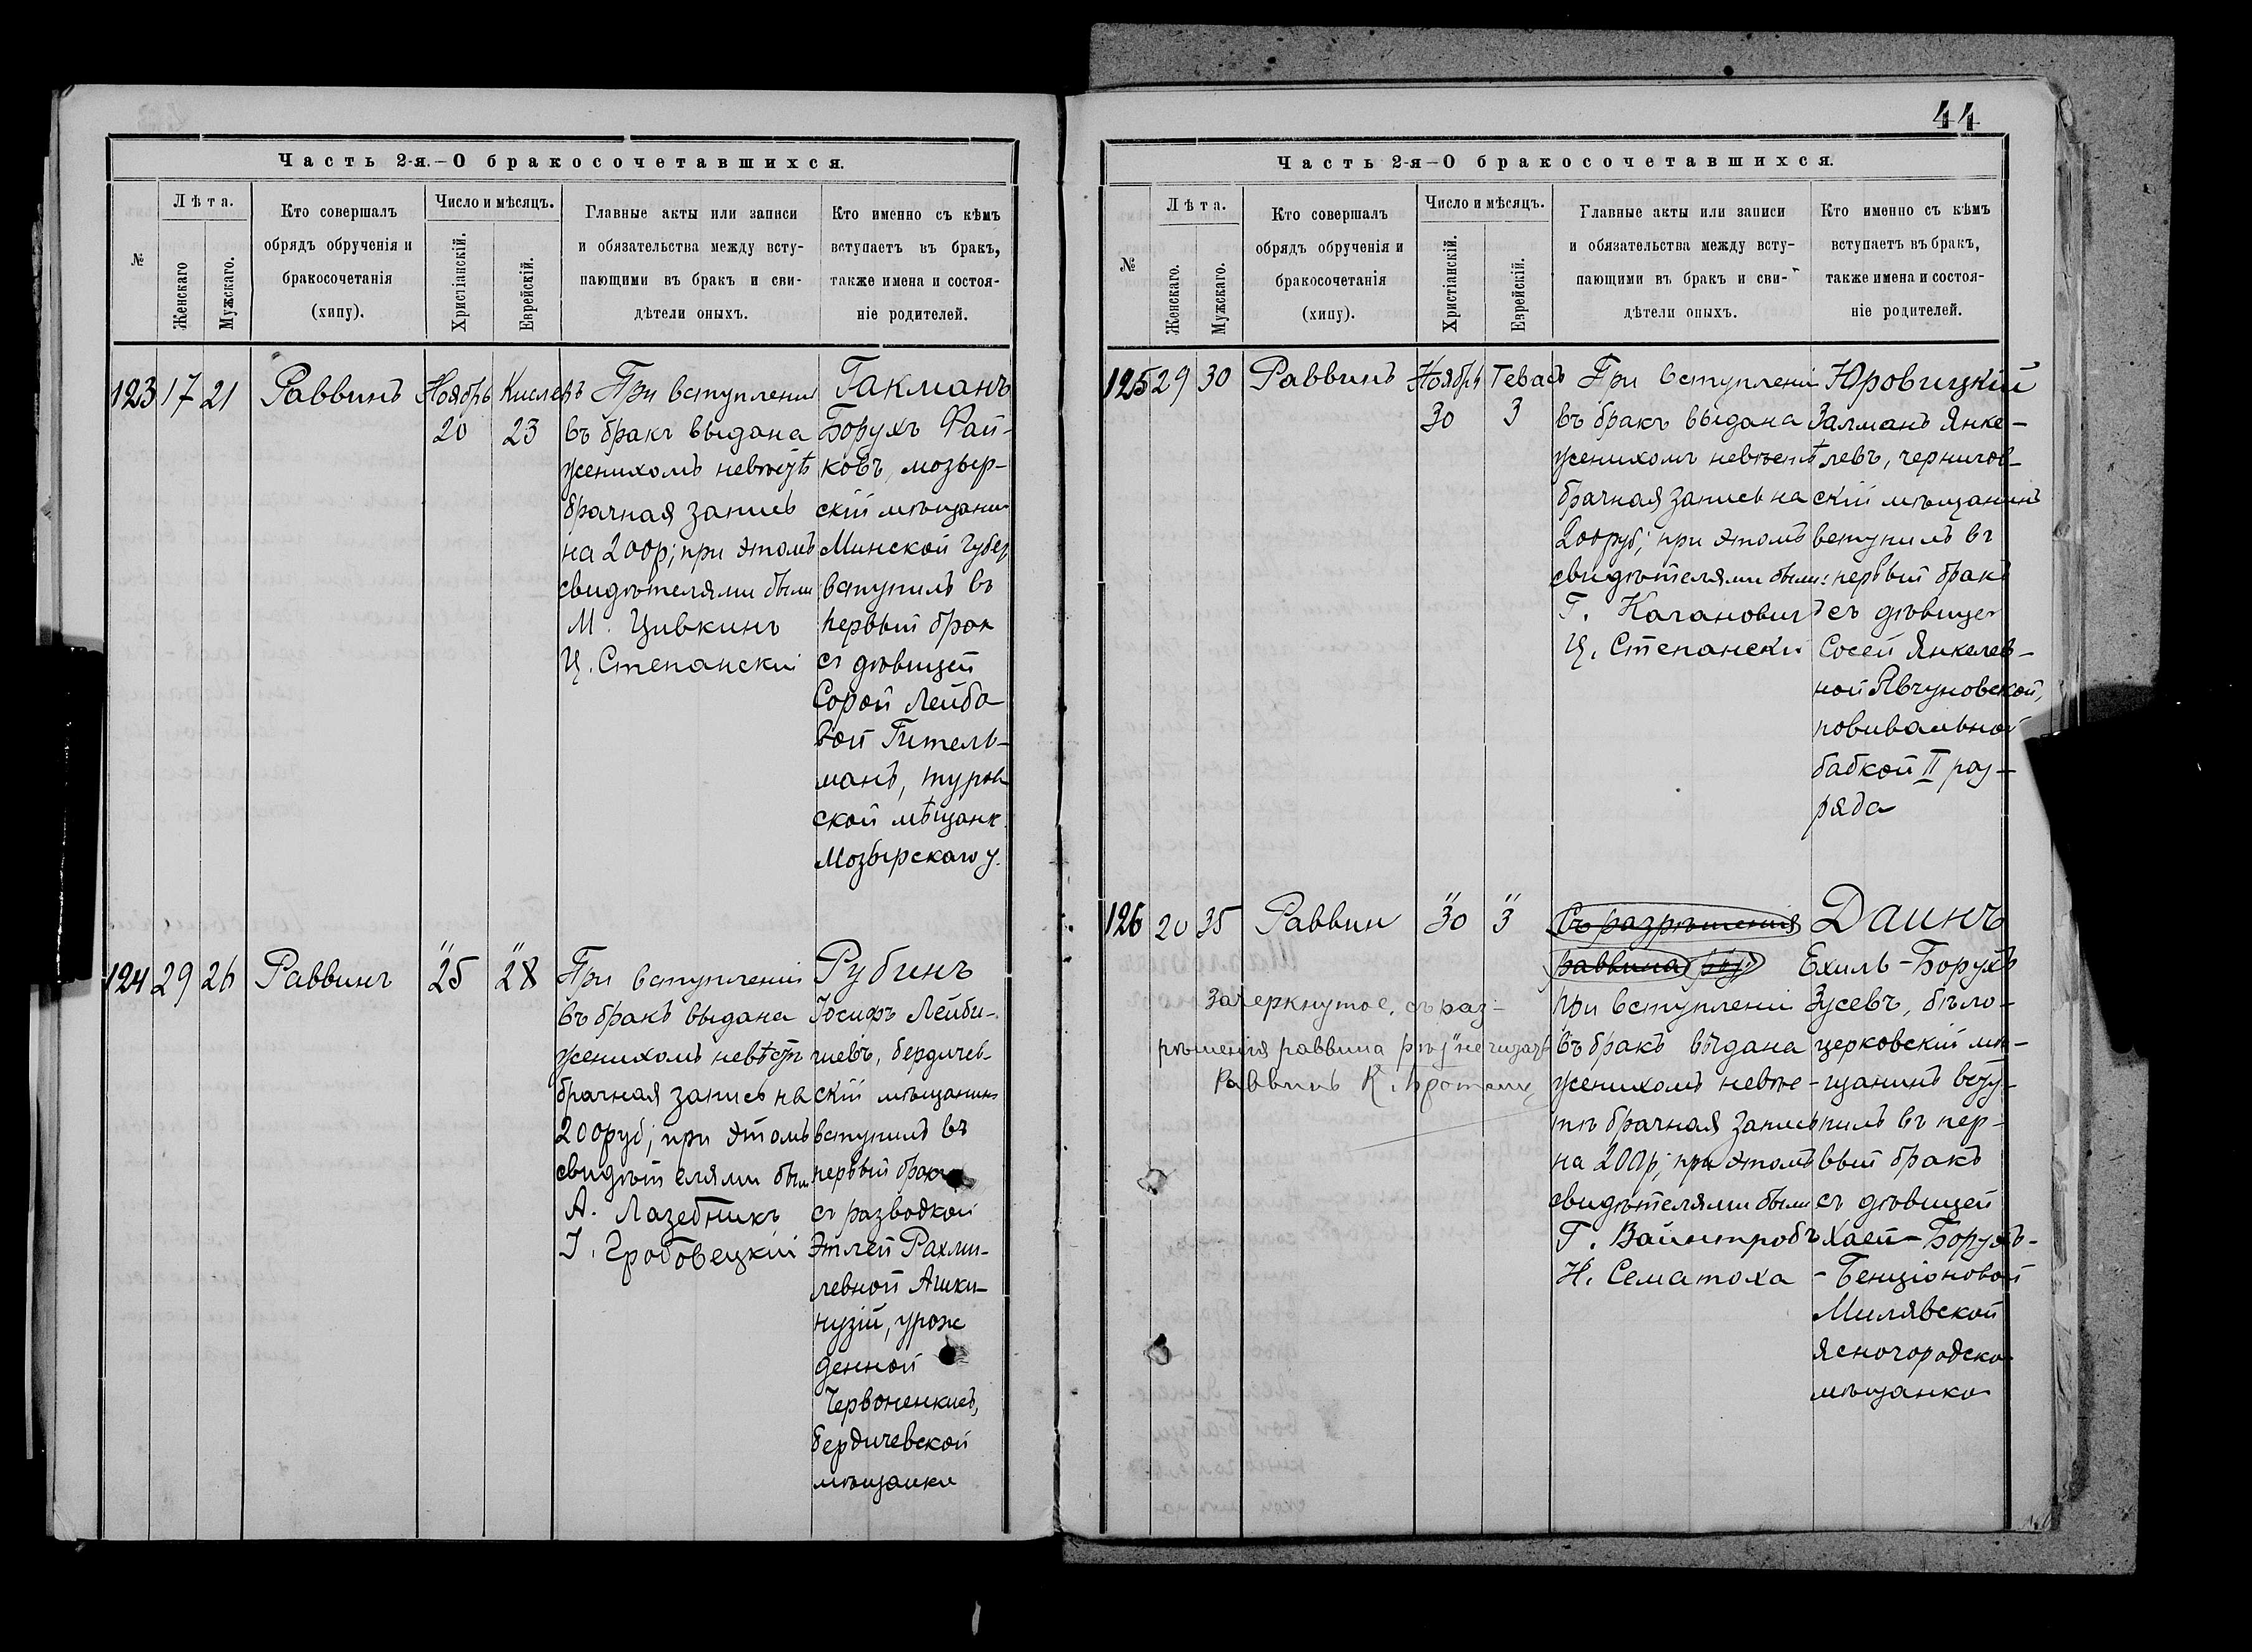 Часть 2-я.—О бракосочетавшихся.
№
Лѣта.
Женскаго
Мужскаго.
Кто совершалъ
обрядъ обрученія и
бракосочетанія
(хипу).
Число и мѣсяцъ.
Христіанскій.
Еврейскій.
Главные акты или записи
и обязательства между всту-
пающими въ бракъ и сви-
дѣтели оныхъ.
Кто именно съ кѣмъ
вступаетъ въ бракъ,
также имена и состоя-
ніе родителей.
123
17
21
Раввинъ
Ноябрь
20
Кислевъ
23
При вступленіи
въ бракъ выдана
женихомъ невѣстѣ
брачная запись
на 200р; при этомъ
свидѣтелями были
М. Цивкинъ
Ц. Степански
Гакманъ
Борухъ Фай-
ковъ, мозыр-
скій мѣщанин
Минской Губер
вступилъ въ
первый брак
съ дѣвицей
Сорой Лейбо
вой Гительманъ
манъ, туров
ской мѣщанк
Мозырскаго у.
124
29
26
Раввинъ
" 25
" 28
При вступленіи
въ бракъ выдана
женихомъ невѣстѣ
брачная запись на
200руб; при этомъ
свидѣтелями был
А. Лазебникъ
І. Гробовецкій
Рубинъ
Іосифъ Лейби-
шевъ, бердичев-
скій мѣщанинъ
вступилъ въ
первый брак
съ разводкой
Этлей Рахми-
левной Ашки-
нузій, урож
денной
Червоненкисъ,
бердичевской
мѣщанки
44
Часть 2-я—О бракосочетавшихся.
№
Лѣта.
Женскаго.
Мужскаго.
Кто совершалъ
обрядъ обрученія и
бракосочетанія
(хипу).
Число и мѣсяцъ.
Христіанскій.
Еврейскій.
Главные акты или записи
и обязательства между всту-
пающими въ бракъ и сви-
дѣтели оныхъ.
Кто именно съ кѣмъ
вступаетъ въ бракъ,
также имена и состоя-
ніе родителей.
125
29
30
Раввинъ
Ноябрь
30
Тевасъ
3
При вступленіи
въ бракъ выдана
женихомъ невѣстѣ
брачная запись на
200руб; при этомъ
свидѣтелями были:
Г. Каганович
Ц. Степански
Юровицкій
Залманъ Янке-
левъ, чернигов-
скій мѣщанинъ
вступилъ въ
первый бракъ
съ дѣвицей
Сосей Янкелев-
ной Явчуновской,
повивальной
бабкой II раз-
ряда
126
20
35
Раввин
" 30
" 3
Съ разрѣшенія
раввина рѣз
при вступленіи
въ бракъ выдана
женихомъ невѣс-
тѣ брачная запись
на 200р; при этомъ
свидѣтелями были
Г. Вайнтробъ
Н. Сематоха
Зачеркнутое „съ раз-
рѣшенія раввина рѣз" не читать
Раввинъ К.
Даинъ
Ехиль-Борухъ
Зусевъ, бѣло-
церковскій мѣ-
щанинъ всту-
пилъ въ пер-
вый бракъ
съ дѣвицей
Хаей-Борухъ-
-Бенціоновой
Милявской
ясногородско
мѣщанко